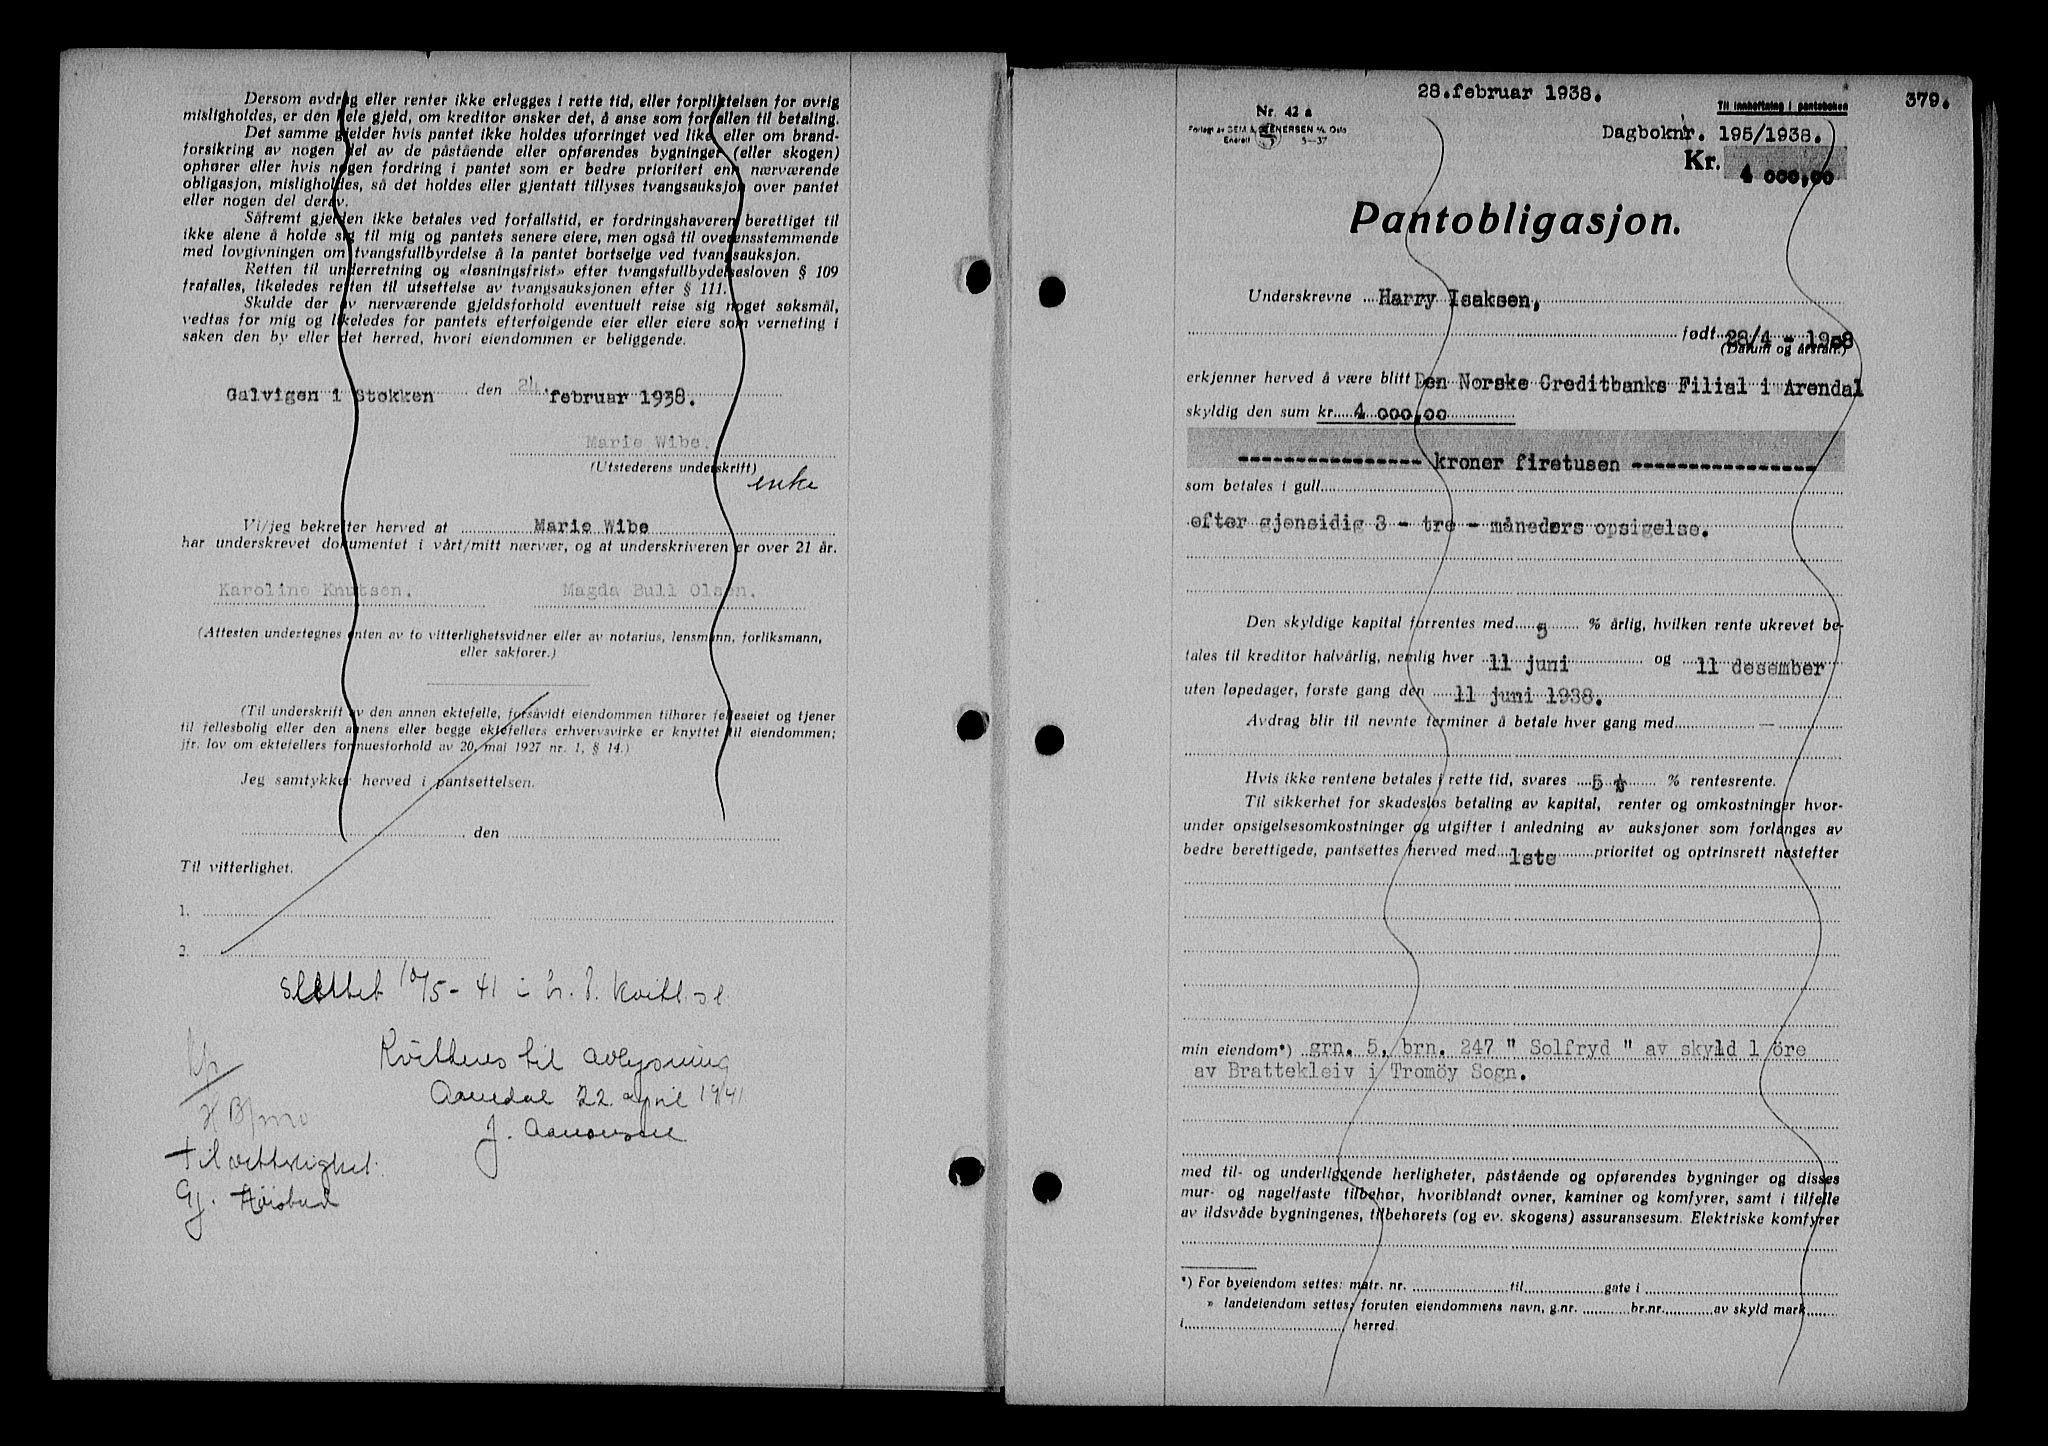 Dersom avdrag eller renter ikke erlegges i rette tid, eller forpliktelsen for øvrig
misligholdes, er den hele gjeld, om kreditor ønsker det, å anse som forfallen til betaling.
Det samme gjelder hvis pantet ikke holdes uforringet ved like eller om brand-
forsikring av nogen del av de påstående eller opførendes bygninger (eller skogen)
ophører eller hvis nogen fordring i pantet som er bedre prioritert enn nærværende
obligasjon, misligholdes, så det holdes eller gjentatt tillyses tvangsauksjon over pantet
eller nogen del derav.
Såfremt gjelden ikke betales ved forfallstid, er fordringshaveren berettiget til
ikke alene å holde sig til mig og pantets senere eiere, men også til overensstemmende
med lovgivningen om tvangsfullbyrdelse å la pantet bortselge ved tvangsauksjon.
Retten til underretning og «løsningsfrist» efter tvangsfullbydelsesloven § 109
frafalles, likeledes retten til utsettelse av tvangsauksjonen efter § 111.
Skulde der av nærværende gjeldsforhold eventuelt reise sig noget søksmål,
vedtas for mig og likeledes for pantets efterfølgende eier eller eiere som verneting i
saken den by eller det herred, hvori eiendommen er beliggende.
Galvigen i Stokken den 24. februar 1938.
Marie Wibe.
(Utstederens underskrift)
enke
Vi/jeg bekrefter herved at Marie Wibe
har underskrevet dokumentet i vårt/mitt nærvær, og at underskriveren er over 21 år.
Karoline Knutsen. Magda Bull Olsen.
(Attesten undertegnes enten av to vitterlighetsvidner eller av notarius, lensmann, forliksmann,
eller sakfører.)
(Til underskrift av den annen ektefelle, forsåvidt eiendommen tilhører felleseiet og tjener
til fellesbolig eller den annens eller begge ektefellers erhvervsvirke er knyttet til eiendommen;
jfr. lov om ektefellers formuesforhold av 20. mai 1927 nr. 1, § 14.)
Jeg samtykker herved i pantsettelsen.
den
Til vitterlighet.
1.
2.
Slettet 10/5-41 i h. t. kvitt.
Kvitteres til avlysning
Arendal 22. april 1941
J.
Til vitterlighet.
Gj.
28.februar 1938.
379.
Nr. 42 a
Til innheftning i pantebøken
Forlagt av SEM & STENERSEN A/S, Oslo
Enerett 5 5-37
Dagboknr. 195/1938.
Kr. 4 000,00
Pantobligasjon.
Underskrevne Harry Isaksen,
født 28/4 - 1908
(Datum og årstall.)
erkjenner herved å være blitt Den Norske Creditbanks Filial i Arendal
skyldig den sum kr. 4 000,00
---------------- kroner firetusen ----------------
som betales i gull
efter gjensidig 3 - tre - måneders opsigelse.
Den skyldige kapital forrentes med 5 % årlig, hvilken rente ukrevet be-
tales til kreditor halvårlig, nemlig hver 11 juni og 11 desember
uten løpedager, første gang den 11 juni 1938.
Avdrag blir til nevnte terminer å betale hver gang med —
Hvis ikke rentene betales i rette tid, svares 5 % rentesrente.
Til sikkerhet for skadesløs betaling av kapital, renter og omkostninger hvor-
under opsigelsesomkostninger og utgifter i anledning av auksjoner som forlanges av
bedre berettigede, pantsettes herved med 1ste prioritet og optrinsrett nestefter
min eiendom*) grn. 5, brn. 247 " Solfryd " av skyld 1 öre
av Brattekleiv i Tromöy Sogn.
med til- og underliggende herligheter, påstående og opførendes bygninger og disses
mur- og nagelfaste tilbehør, hvoriblandt ovner, kaminer og komfyrer, samt i tilfelle
av ildsvåde bygningenes, tilbehørets (og ev. skogens) assuransesum. Elektriske komfyrer
*) For byeiendom settes: matr. nr. til gate i
» landeiendom settes; foruten eiendommens navn, g.nr. br.nr. av skyld mark
i herred.